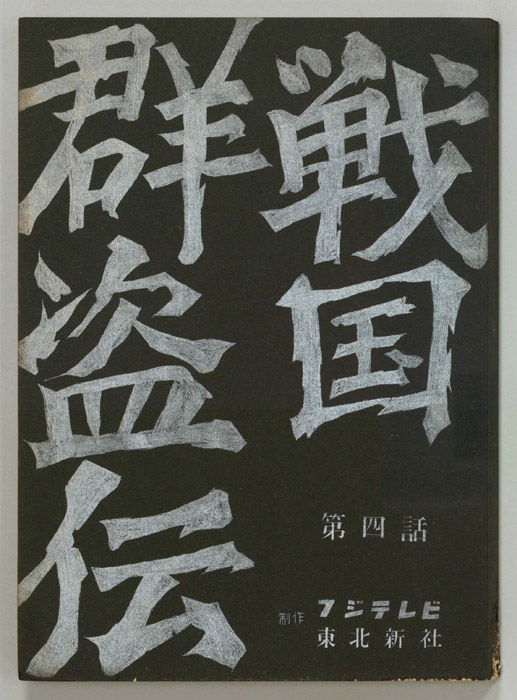 戦国
群盗伝
第四話
制作 フジテレビ
東北新社